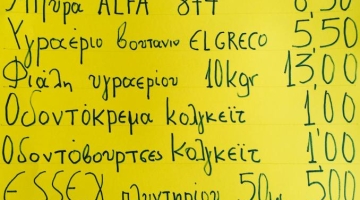 Μπύρα ALFA
Υγραέριο βουτανιο ELGRECO 5,50
Φιάλη υγραερίου 10kgr 13,00
Οδοντόκρεμα κολγκεϊτ 1,00
Οδοντόβουρτσες κολγκεϊτ 1,00
ESSEX πλυντηρίου 500